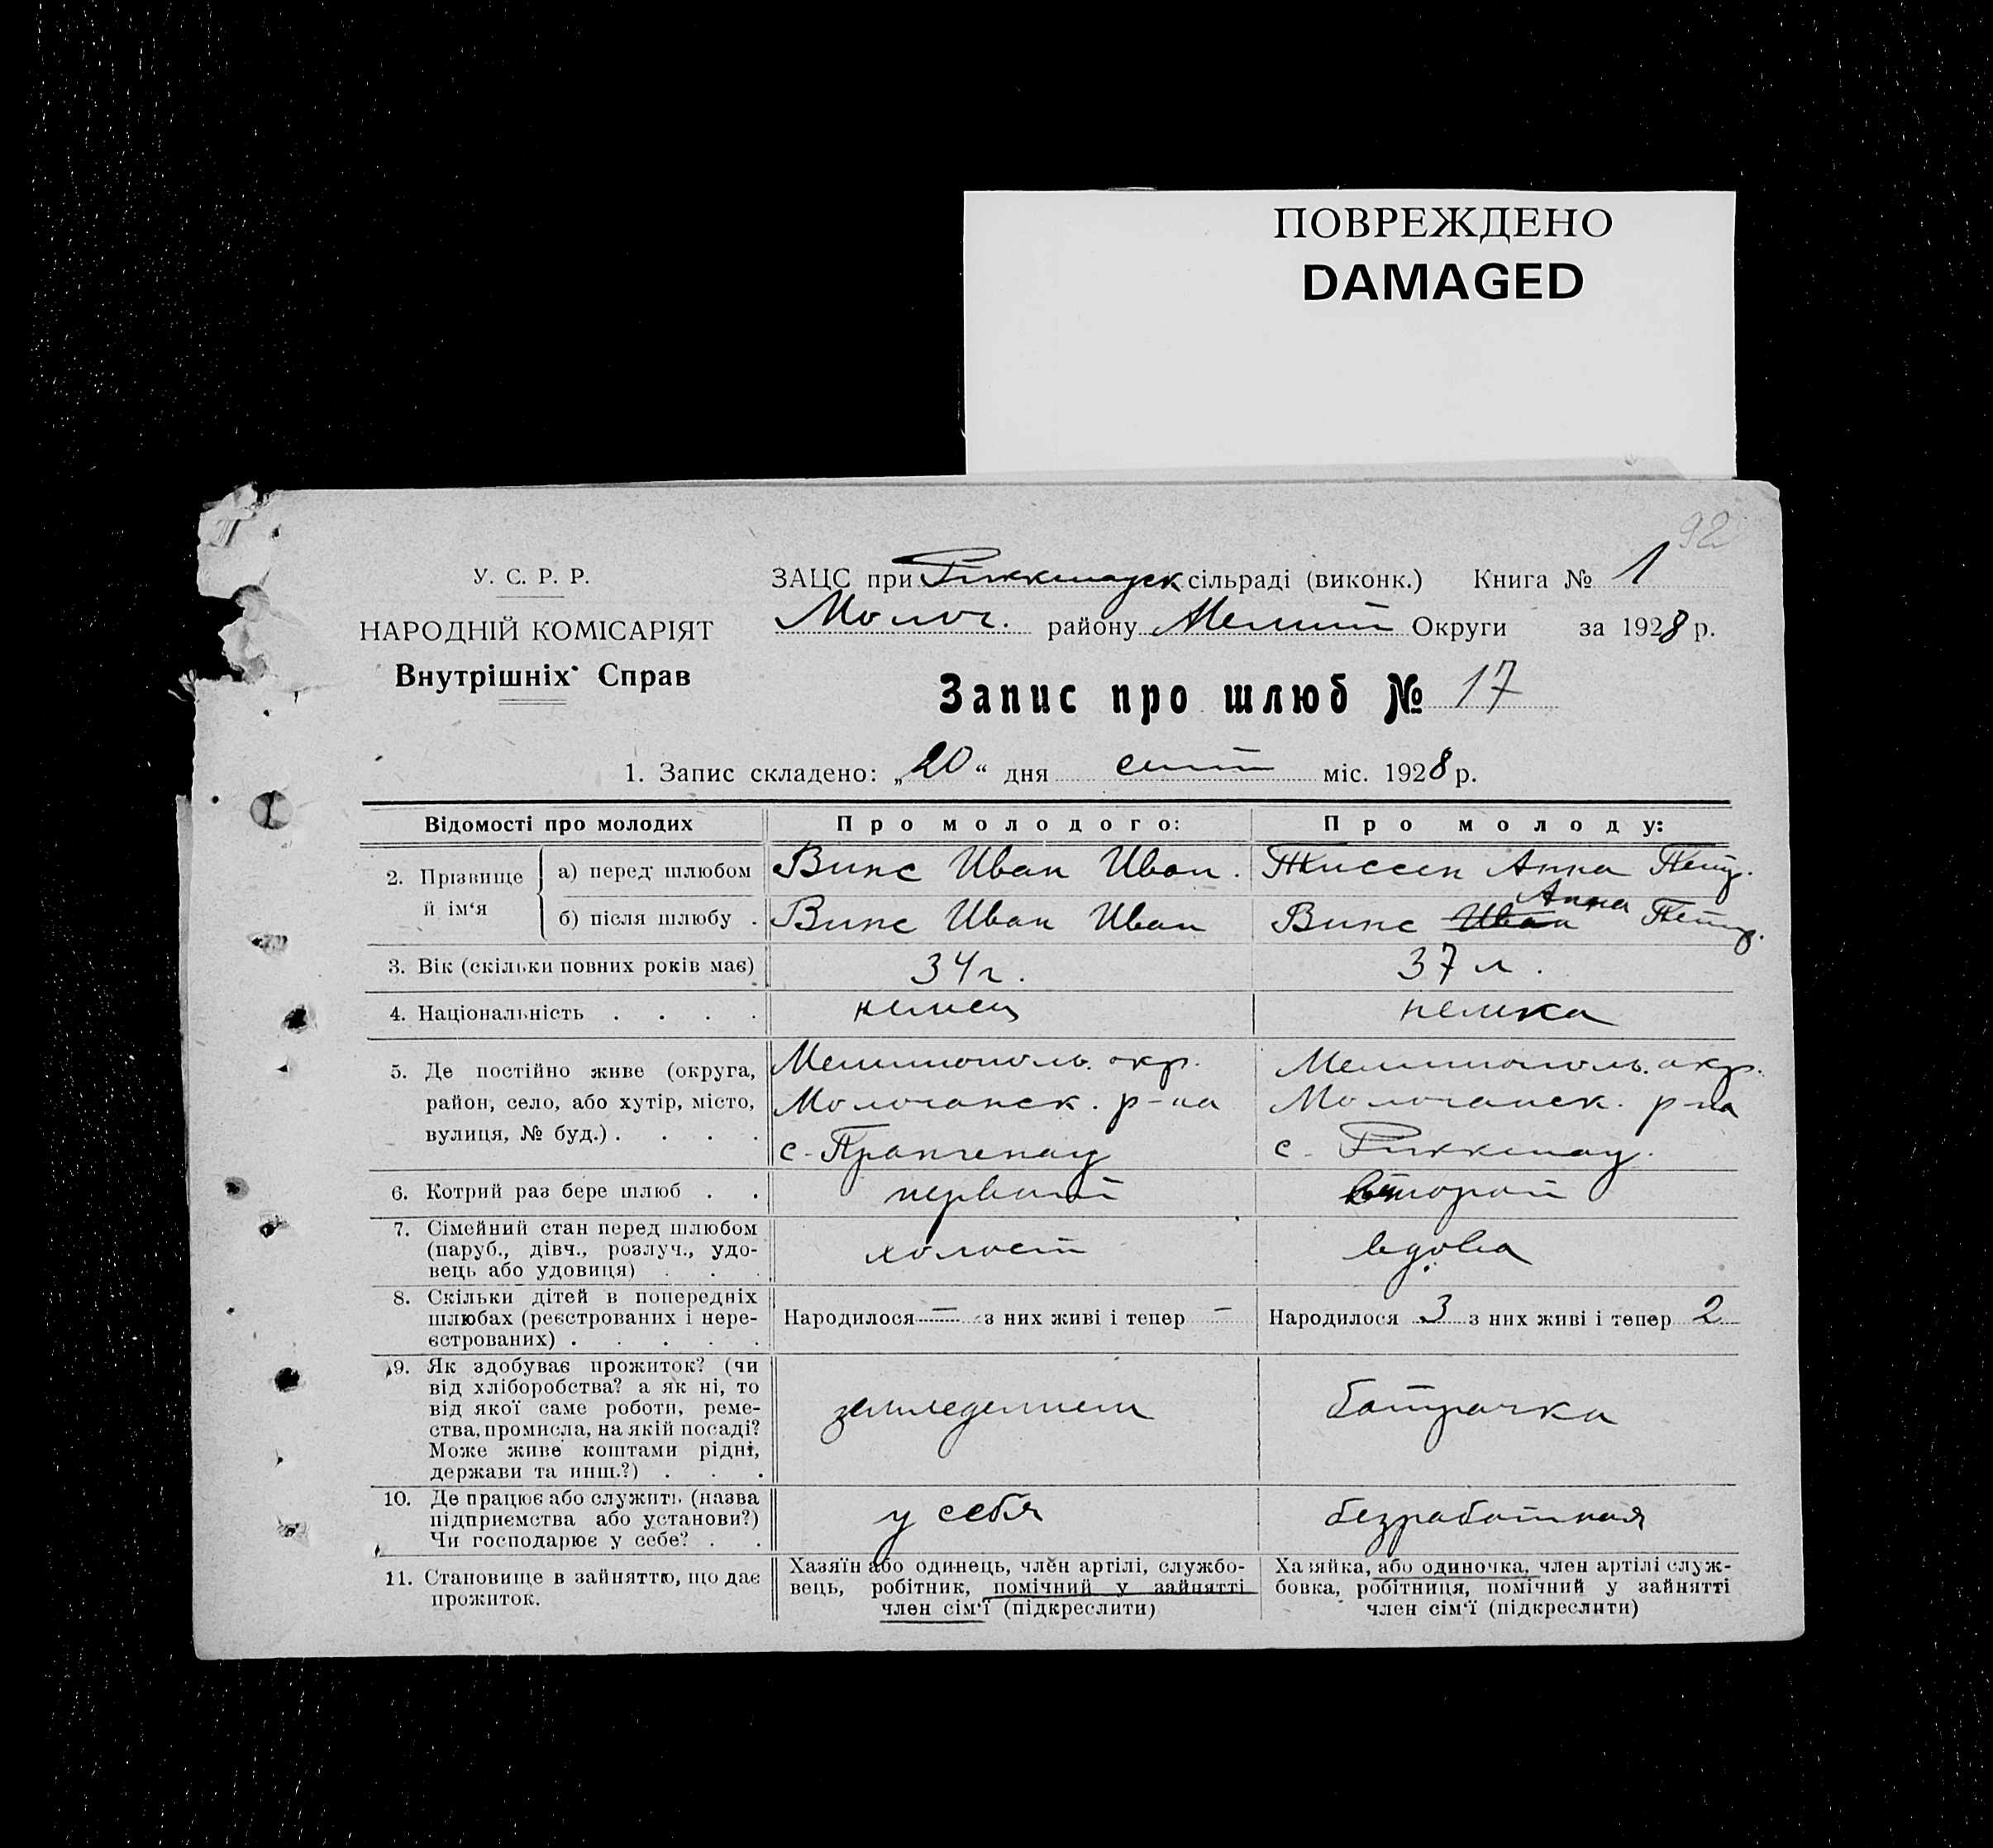 ПОВРЕЖДЕНО
DAMAGED
92
У. С. Р. Р.
НАРОДНІЙ КОМІСАРІЯТ
Внутрішніх Справ
ЗАЦС при Риккенауск сільраді (виконк.) Книга № 1
Молоч. району Мелит Округи за 1928 р.
Запис про шлюб № 17
1. Запис складено: „20“ дня сент міс. 1928 р.
Відомості про молодих Про молодого: Про молоду:
2. Прізвище й ім‘я а) перед шлюбом Винс Иван Иван. Тиссен Анна Петр.
б) після шлюбу . Винс Иван Иван Винс Иван Анна Петр.
3. Вік (скільки повних років має) 34 г. 37 л.
4. Національність . . . . немец немка
5. Де постійно живе (округа, район, село, або хутір, місто, вулиця, № буд.) . . . . Мелитополь. окр. Мелитополь. окр.
Молочанск. р-на Молочанск. р-на
с. Прангенау с. Риккенау.
6. Котрий раз бере шлюб . . первый второй
7. Сімейний стан перед шлюбом (паруб., дівч., розлуч., удовець або удовиця) . . . холост вдова
8. Скільки дітей в попередніх шлюбах (реєстрованих і нереєстрованих) . . . . . Народилося — з них живі і тепер — Народилося 3 з них живі і тепер 2
9. Як здобуває прожиток? (чи від хліборобства? а як ні, то від якої саме роботи, ремества, промисла, на якій посаді? Може живе коштами рідні, держави та инш.?) . . . земледелием батрачка
10. Де працює або служить (назва підприємства або установи?) Чи господарює у себе? . . у себя безработная
11. Становище в зайняттю, що дає прожиток. Хазяїн або одинець, член артілі, службовець, робітник, помічний у зайнятті член сім‘ї (підкреслити) Хазяйка, або одиночка, член артілі службовка, робітниця, помічний у зайнятті член сім‘ї (підкреслити)